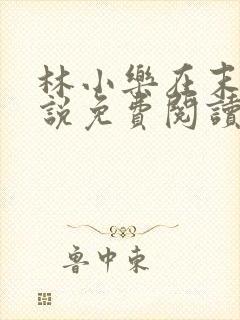 林小樂在末
說免費閱讀
魯中東